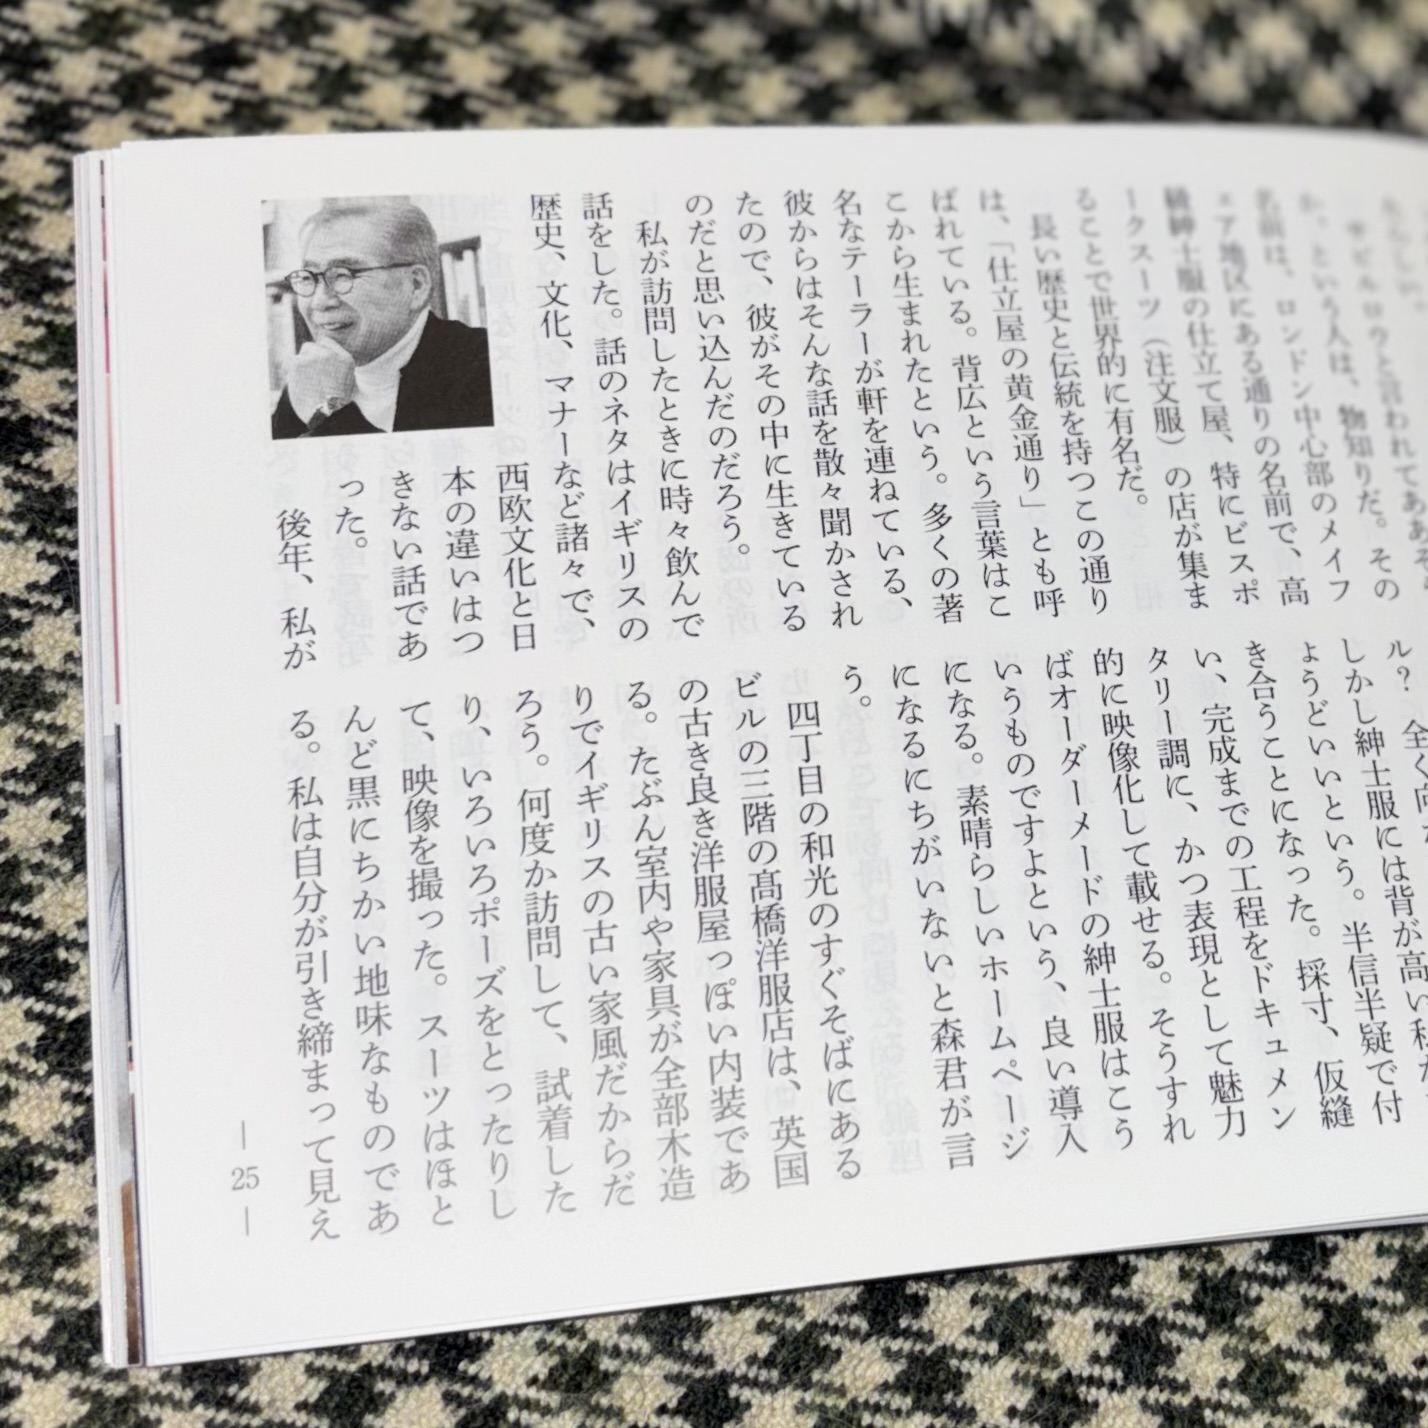 らしい。
サビルロウと言われてああそ
か、という人は、物知りだ。その
名前は、ロンドン中心部のメイフ
ェア地区にある通りの名前で、高
級紳士服の仕立て屋、特にビスポ
ークスーツ（注文服）の店が集ま
ることで世界的に有名だ。
長い歴史と伝統を持つこの通り
は、「仕立屋の黄金通り」とも呼
ばれている。背広という言葉はこ
こから生まれたという。多くの著
名なテーラーが軒を連ねている、
彼からはそんな話を散々聞かされ
たので、彼がその中に生きている
のだと思い込んだのだろう。
私が訪問したときに時々飲んで
話をした。話のネタはイギリスの
歴史、文化、マナーなど諸々で、
西欧文化と日
本の違いはつ
きない話であ
った。
後年、私が
ル？ 全く
しかし紳士服には背が高い私が
ょうどいいという。半信半疑で付
き合うことになった。採寸、仮縫
い、完成までの工程をドキュメン
タリー調に、かつ表現として魅力
的に映像化して載せる。そうすれ
ばオーダーメードの紳士服はこう
いうものですよという、良い導入
になる。素晴らしいホームページ
になるにちがいないと森君が言
う。
四丁目の和光のすぐそばにある
ビルの三階の髙橋洋服店は、英国
の古き良き洋服屋っぽい内装であ
る。たぶん室内や家具が全部木造
りでイギリスの古い家風だからだ
ろう。何度か訪問して、試着した
り、いろいろポーズをとったりし
て、映像を撮った。スーツはほと
んど黒にちかい地味なものであ
る。私は自分が引き締まって見え
— 25 —